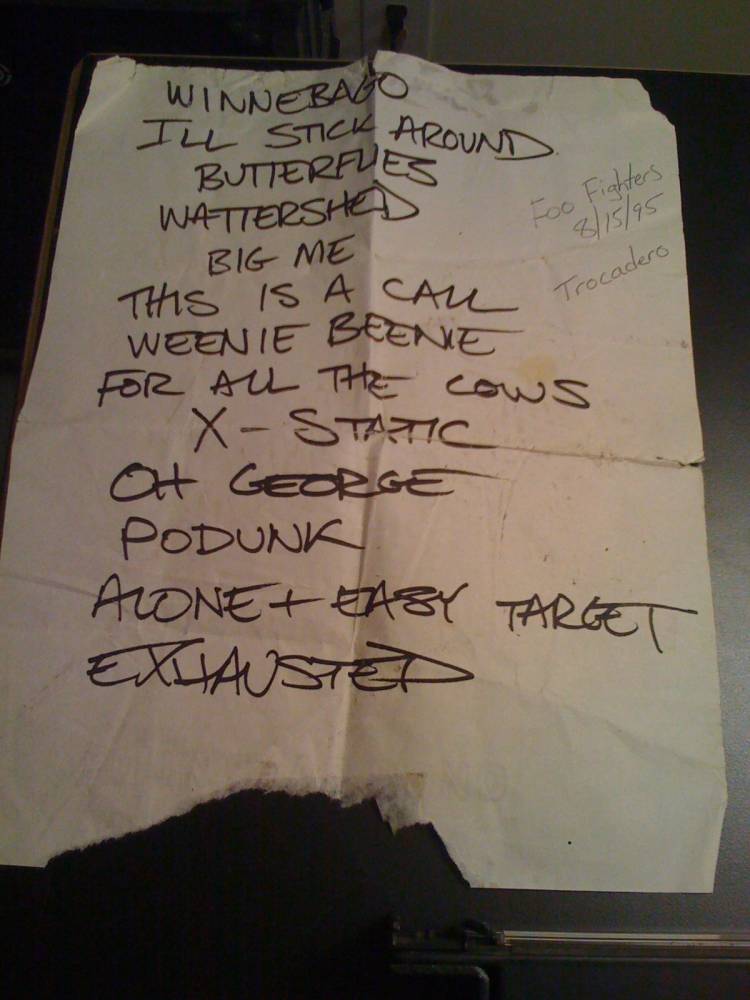 WINNEBAGO
ILL STICK AROUND
BUTTERFLIES
WATTERSHED
BIG ME
THIS IS A CALL
WEENIE BEENIE
FOR ALL THE COWS
X-STATIC
OH GEORGE
PODUNK
ALONE + EASY TARGET
EXHAUSTED
Foo Fighters
8/15/95
Trocadero